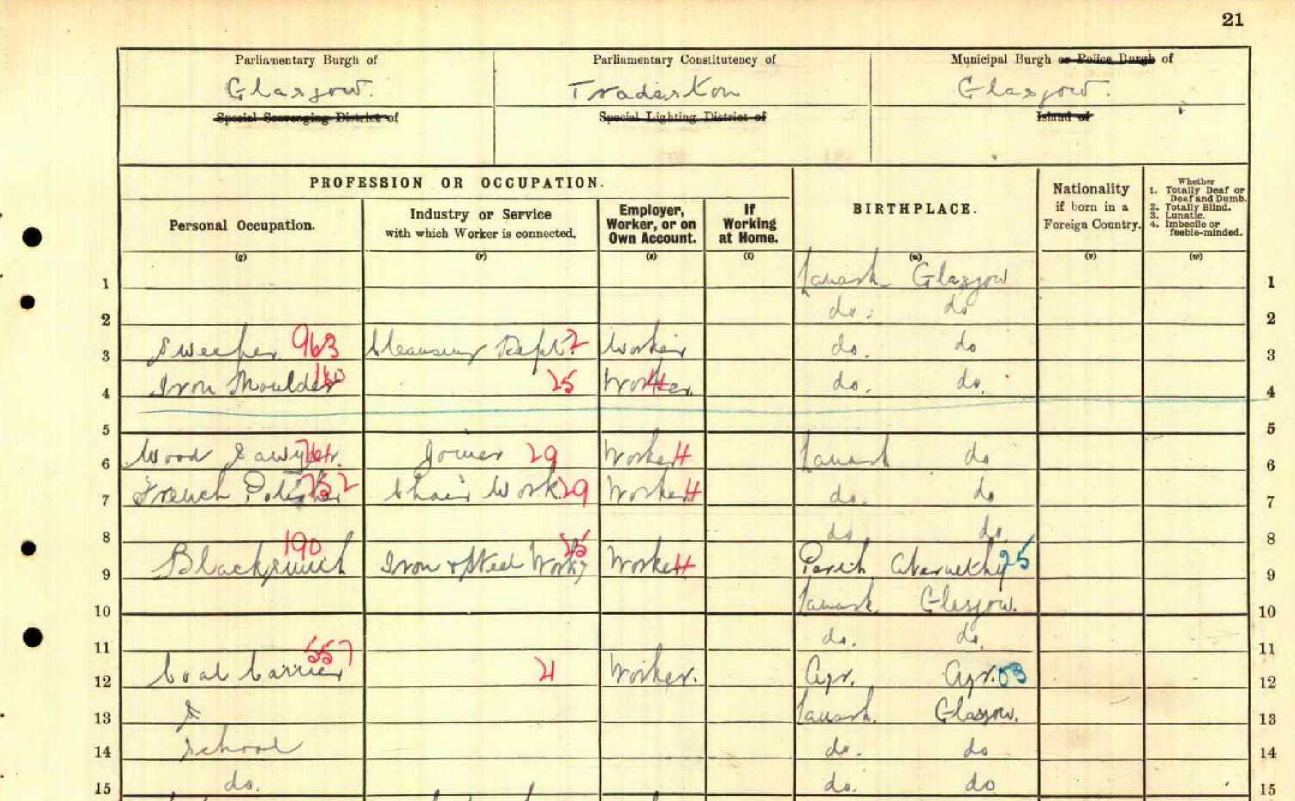 21
Parliamentary Burgh of
Glasgow.
Special Scavenging District of
Parliamentary Constitutency of
Tradeston
Special Lighting District of
Municipal Burgh or Police Burgh of
Glasgow.
Island of
PROFESSION OR OCCUPATION.
Personal Occupation.
(q)
Industry or Service
with which Worker is connected.
(r)
Employer,
Worker, or on
Own Account.
(s)
If
Working
at Home.
(t)
BIRTHPLACE.
(u)
Nationality
if born in a
Foreign Country.
(v)
Whether
1. Totally Deaf or
Deaf and Dumb.
2. Totally Blind.
3. Lunatic.
4. Imbecile or
feeble-minded.
(w)
1 Lanark Glasgow 1
2 do. do 2
3 Sweeper 963 Cleansing Dept 2 Worker do. do 3
4 Iron Moulder 25 Worker do. do. 4
5 5
6 Wood Sawyer Joiner 29 Worker 4 Lanark do 6
7 French Polisher Chair Work 29 Worker 4 do. do 7
8 do do. 8
9 Blacksmith 190 Iron & Steel Works Worker 4 Perth Abernethy 25 9
10 Lanark Glasgow. 10
11 do. do. 11
12 Coal Carrier 557 Worker. Ayr. Ayr. 03 12
13 Lanark. Glasgow. 13
14 School do. do 14
15 do. do. do 15